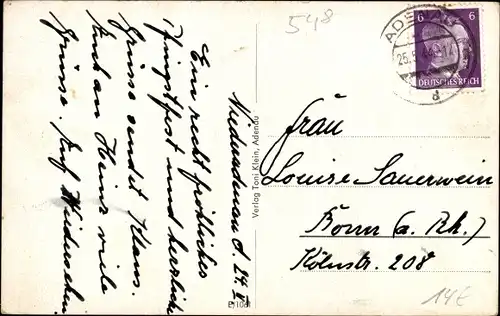 548
Niederadenau d. 24. V.
Ein recht fröhliches
Pfingstfest und herzliche
Grüsse sendet Klaus.
Und an Heinz viele
Grüsse. Auf Wiedersehen.
Verlag Toni Klein, Adenau
ADENAU
25.5.
d
6 6
DEUTSCHES REICH
Frau
Louise Sauerwein
Bonn (a. Rh.)
Kölnstr. 208
14E